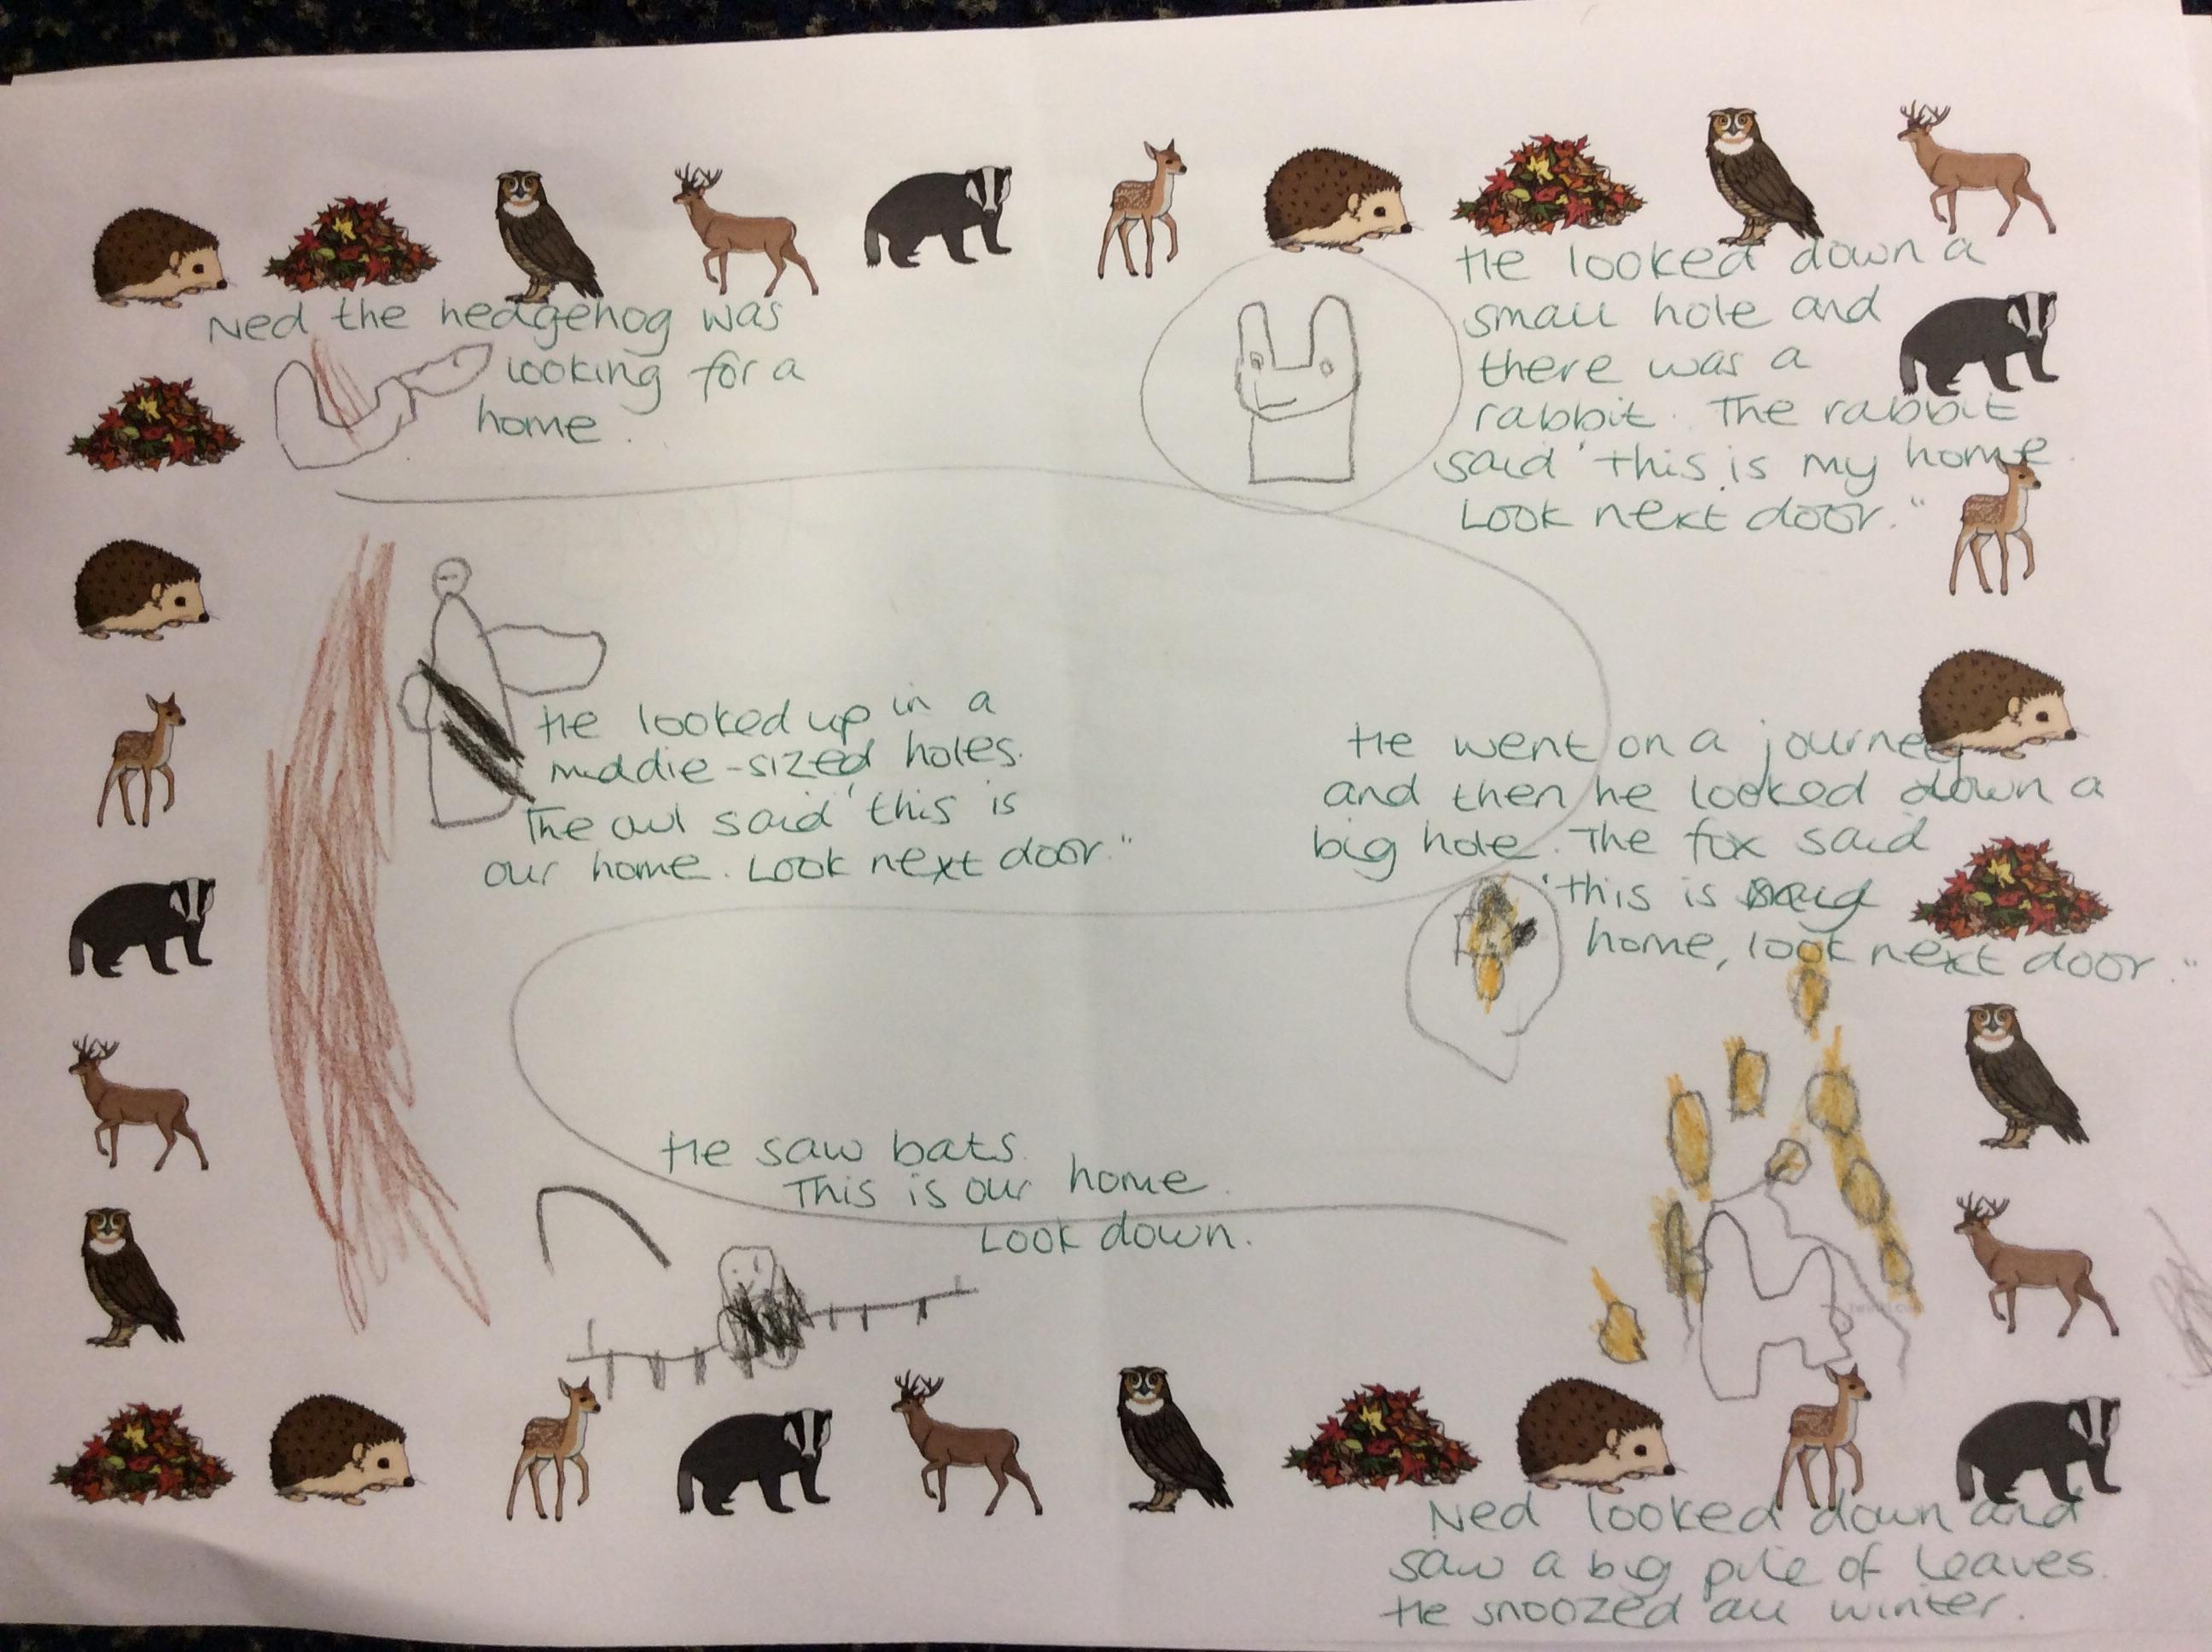 Ned the hedgehog was
looking for a
home.
He looked down a
small hole and
there was a
rabbit. The rabbit
said 'this is my home.
Look next door."
He went on a journey
and then he looked down a
big hole. The fox said
'this is
home, look next door."
He looked up in a
middle-sized holes.
The owl said 'this is
our home. Look next door."
He saw bats.
This is our home.
Look down.
Ned looked down and
saw a big pile of leaves.
He snoozed all winter.